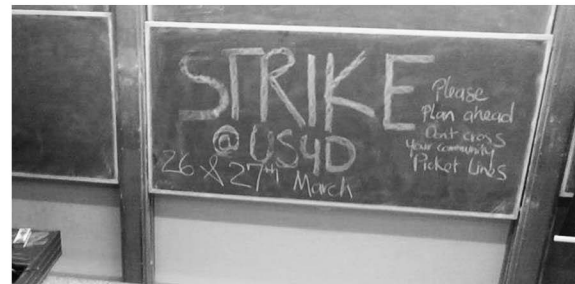 STRIKE
@ USYD
26 & 27th March
Please
Plan ahead
Dont cross
your community
Picket Lines